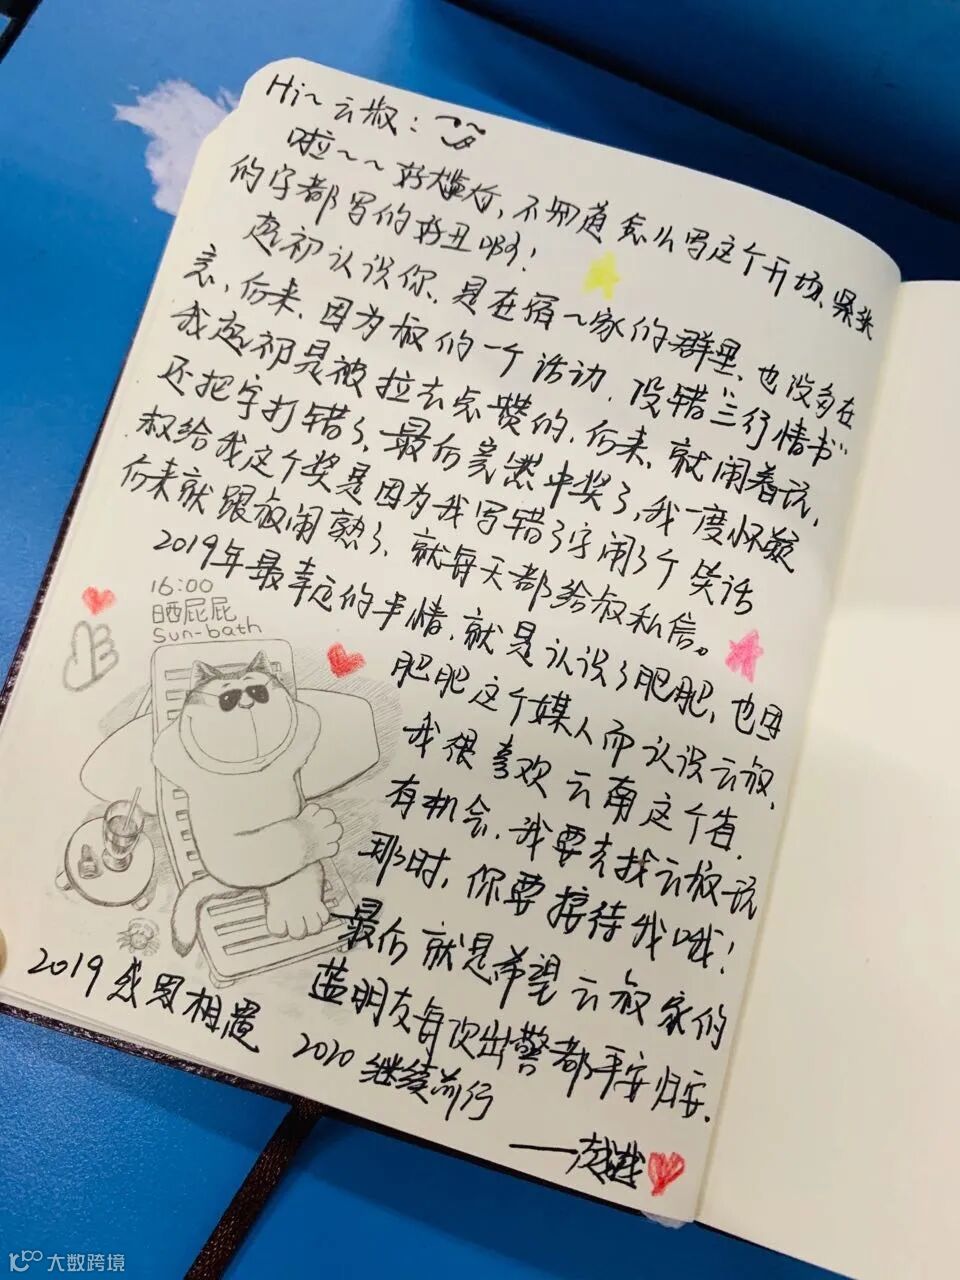 Hi~云叔:
啦~~好尴尬,不知道怎么写这个开场,紧张
的字都写的好丑啊!
起初认识你,是在宿~家的群里,也没多在
意,后来,因为叔的一个活动,没错"三行情书"
我起初是被拉去点赞的,后来,就闹着玩,
还把字打错了,最后竟然中奖了,我一度怀疑
叔给我这个奖是因为我写错了字闹了个笑话
后来就跟叔闹熟了,就每天都给叔私信。
2019年最幸运的事情,就是认识了肥肥,也因
肥肥这个媒人而认识云叔,
我很喜欢云南这个省,
有机会,我要去找云叔玩
那时,你要接待我哦!
最后就是希望云叔家的
蓝朋友每次出警都平安归安.
2019感恩相遇 2020继续前行
16:00
晒屁屁
Sun-bath
大数跨境